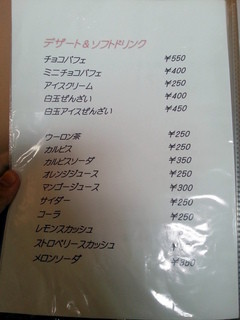 デザート＆ソフトドリンク
チョコパフェ ￥550
ミニチョコパフェ ￥400
アイスクリーム ￥250
白玉ぜんざい ￥400
白玉アイスぜんざい ￥450
ウーロン茶 ￥250
カルピス ￥250
カルピスソーダ ￥350
オレンジジュース ￥250
マンゴージュース ￥300
サイダー ￥250
コーラ ￥250
レモンスカッシュ
ストロベリースカッシュ ￥
メロンソーダ ￥350